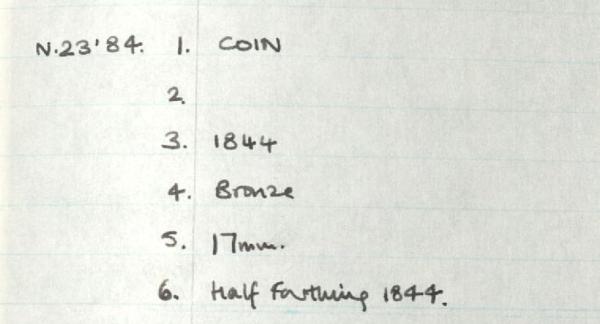 N.23'84. 1. COIN
2.
3. 1844
4. Bronze
5. 17mm.
6. Half Farthing 1844.